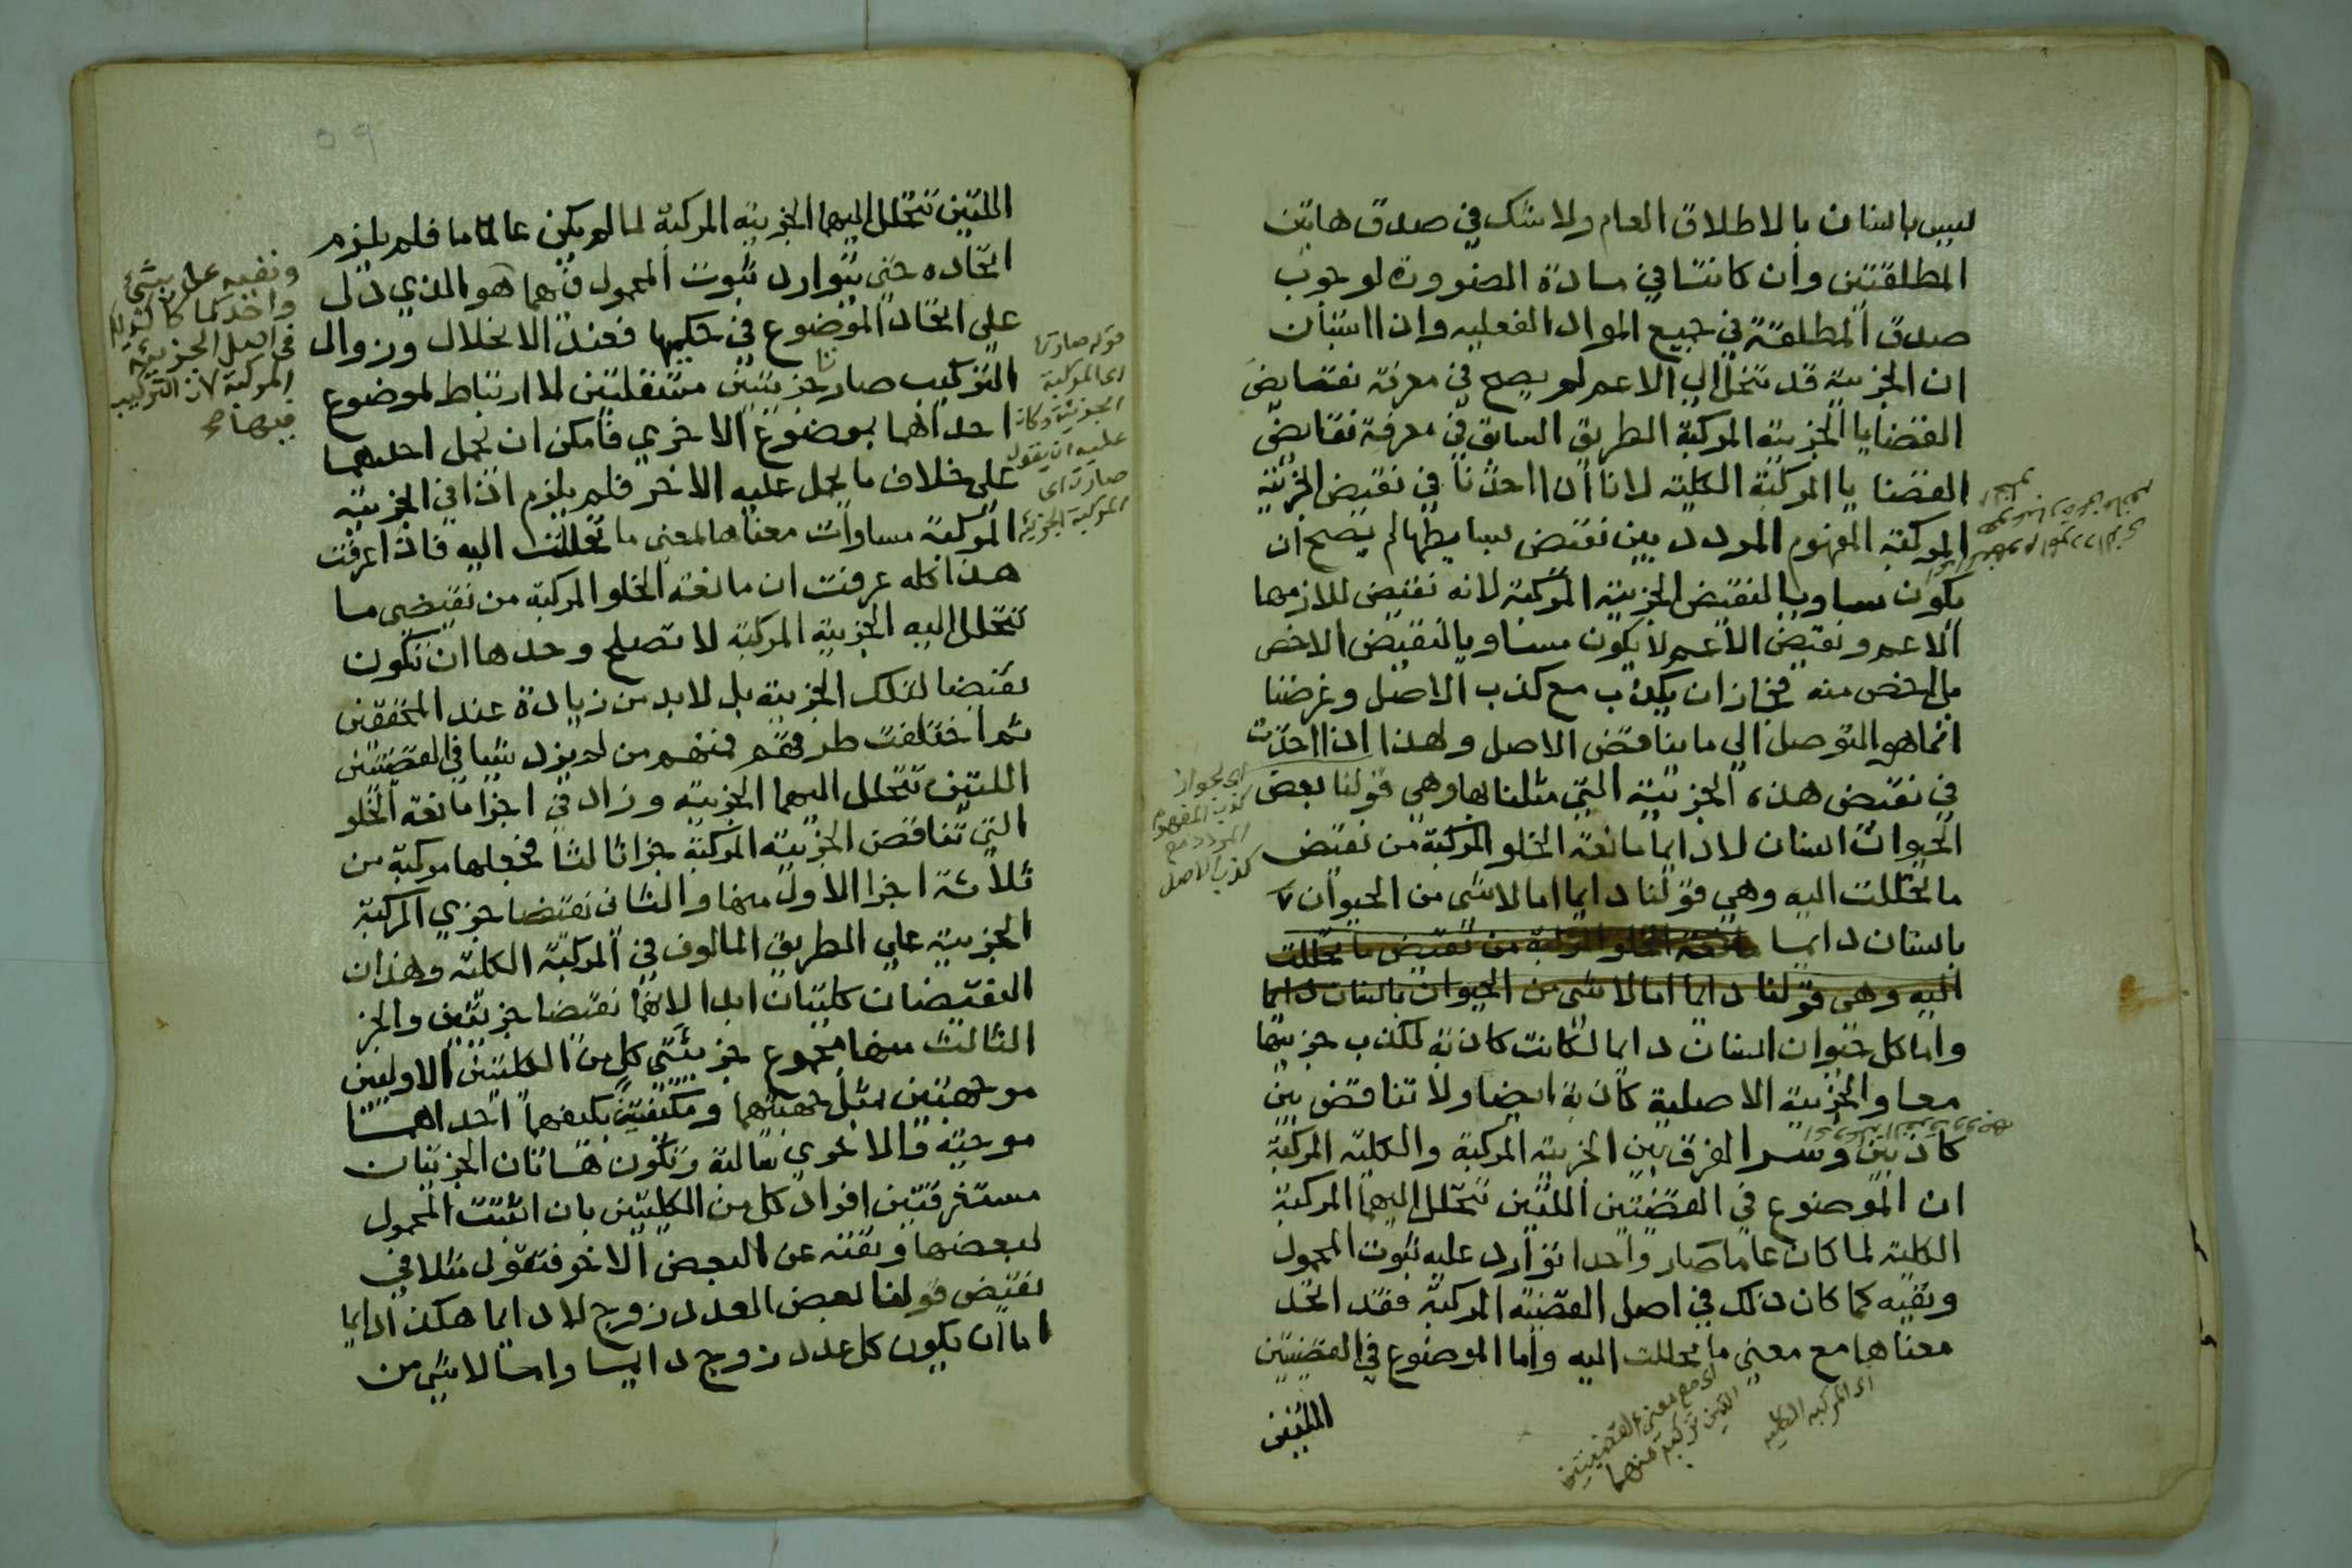 ليس بانسان بالاطلاق العام ولا شك في صدق هاتين
المطلقتين وان كانتا في مادة الضرورة لوجوب
صدق المطلقة في جميع المواد الفعليه واذا استبان
ان الجزيية قد تنحل الي الاعم لم يصح في معرفة نقايض
القضايا الجزييه المركبة الطريق السابق في معرفة نقايض
القضايا المركبة الكليه لانا اذا اخذنا في نقيض الجزئية
المركبة المفهوم المردد بين نقيض بسايطها لم يصح ان
يكون مساويا لنقيض الجزيية المركبة لانه نقيض للازمها
الاعم ونقيض الاعم لا يكون مساويا لنقيض الاخص
بل اخص منه فجاز ان يكذب مع كذب الاصل وغرضنا
انما هو التوصل الي ما يناقض الاصل ولهذا اذا اخذت
في نقيض هذه الجزئية التي مثلنا بها وهي قولنا بعض
الحيوان انسان لا دايما مانعة الخلو المركبة من نقيض
ما تحللت اليه وهي قولنا دايما اما لا شي من الحيوان
بانسان دايما مانعة الخلو المركبة من نقيض ما تحللت
اليه وهي قولنا دايما اما لا شي من الحيوان بانسان دايما
واما كل حيوان انسان دايما لكانت كاذبة لكذب جزييها
معا والجزيية الاصلية كاذبة ايضا ولا تناقض بين
كاذبتين وسر الفرق بين الجزيية المركبة والكليه المركبة
ان الموضوع في القضيتين اللتين تتحلل اليهما المركبة
الكليه لما كان عاما صار واحدا توارد عليه ثبوت المحمول
ونفيه كما كان ذلك في اصل القضيه المركبة فقد اتحد
معناها مع معني ما تحللت اليه واما الموضوع في القضيتين
اللتين
اي لجواز
كذب المفهوم
المردد مع
كذب الاصل
اي مع معنى القضيتين
اللتين تركبت منهما
اى المركبه الكليه
اللتين تتحلل اليهما الجزييه المركبة لما لم يكن عاما فلم يلزم
اتحاده حتي يتوارد ثبوت المحمول هو الذي دل
علي اتحاد الموضوع في حكميها فعند الانحلال وزوال
التركيب صارتا جزييتين مستقلتين لا ارتباط لموضوع
احداهما بموضوع الاخري فامكن ان يحمل احدهما
علي خلاف ما يحمل عليه الاخر فلم يلزم اذا في الجزيية
المركبة مساوات معناها لمعني ما تحللت اليه فاذا عرفت
هذا كله عرفت ان مانعة الخلو المركبة من نقيضي ما
تتحلل اليه الجزيية المركبة لا تصلح وحدها ان تكون
نقيضا لتلك الجزيية بل لابد من زيادة عند المحققين
ثم اختلفت طرقهم فمنهم من لم يزد شيا في القضيتين
اللتين تتحلل اليهما الجزييه وزاد في اجزا مانعة الخلو
التي تناقض الجزييه المركبة جزا ثالثا فجعلها مركبة من
ثلاثة اجزا الاول منها والثاني نقيضا جزي المركبة
الجزيية علي الطريق المالوف في المركبة الكلية وهذان
النقيضان كليتان ابدا لانهما نقيضا جزئيتين والجز
الثالث منها مجموع جزئيتي كل من الكليتين الاوليين
موجهتين بمثل جهتيهما ومكيفتين بكيفهما احداهما
موجبة والاخري سالبة وتكون هاتان الجزييتان
مستغرقتين افراد كل من الكليتين بان اثبتت المحمول
لبعضها ونفته عن البعض الاخر فتقول مثلا في
نقيض قولنا بعض العدد زوج لا دايما هكذا دايما
اما ان يكون كل عدد زوج دايما واما لا شي من
ونفيه على شئ
واحد كما كان
في اصل الجزيية
المركبة لان التركيب
فيها
قوله صارتا
اى المركبة
الجزئية وكان
عليه ان يقول
صارت اى
المركبة الجزئية